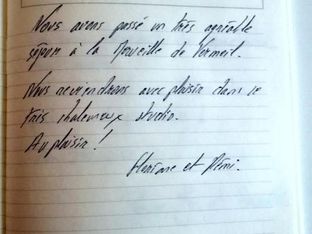 Nous avons passé un très agréable
séjour à la Merveille de Vermeil.
Nous reviendrons avec plaisir dans ce
très chaleureux studio.
Au plaisir !
et Rémi.